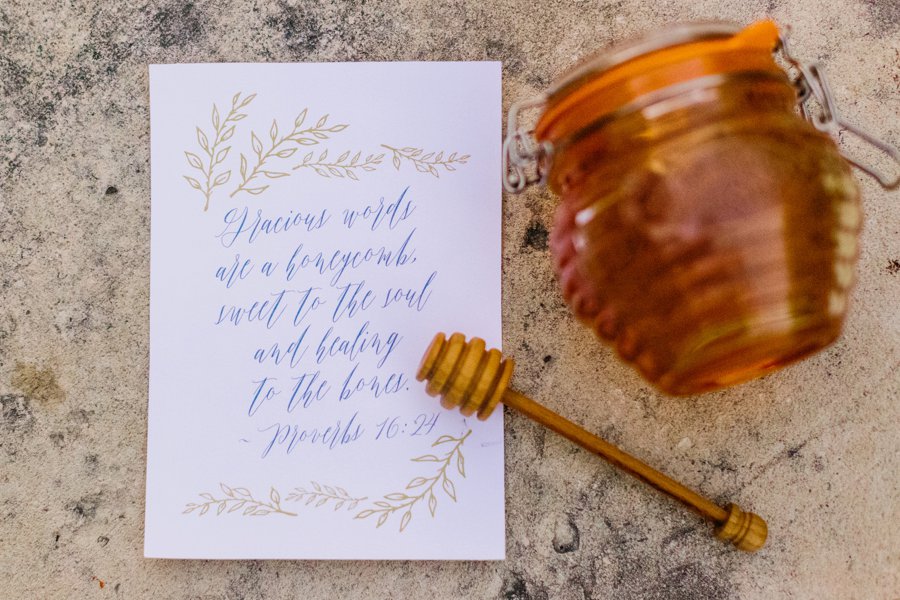 Gracious words
are a honeycomb,
sweet to the soul
and healing
to the bones.
~ Proverbs 16:24